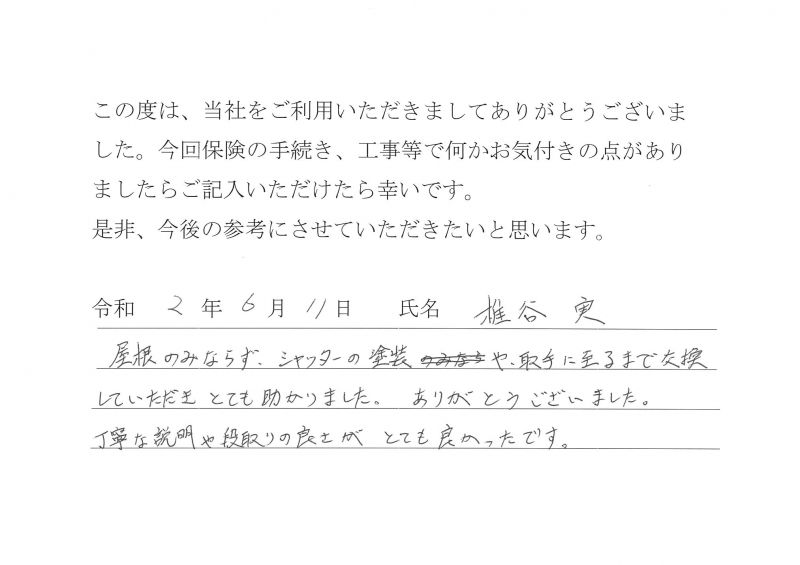 この度は、当社をご利用いただきましてありがとうございま
した。今回保険の手続き、工事等で何かお気付きの点があり
ましたらご記入いただけたら幸いです。
是非、今後の参考にさせていただきたいと思います。
令和 2 年 6 月 11 日 氏名 椎谷 実
屋根のみならず、シャッターの塗装や、取手に至るまで交換
していただき とても助かりました。 ありがとうございました。
丁寧な説明や段取りの良さが とても良かったです。